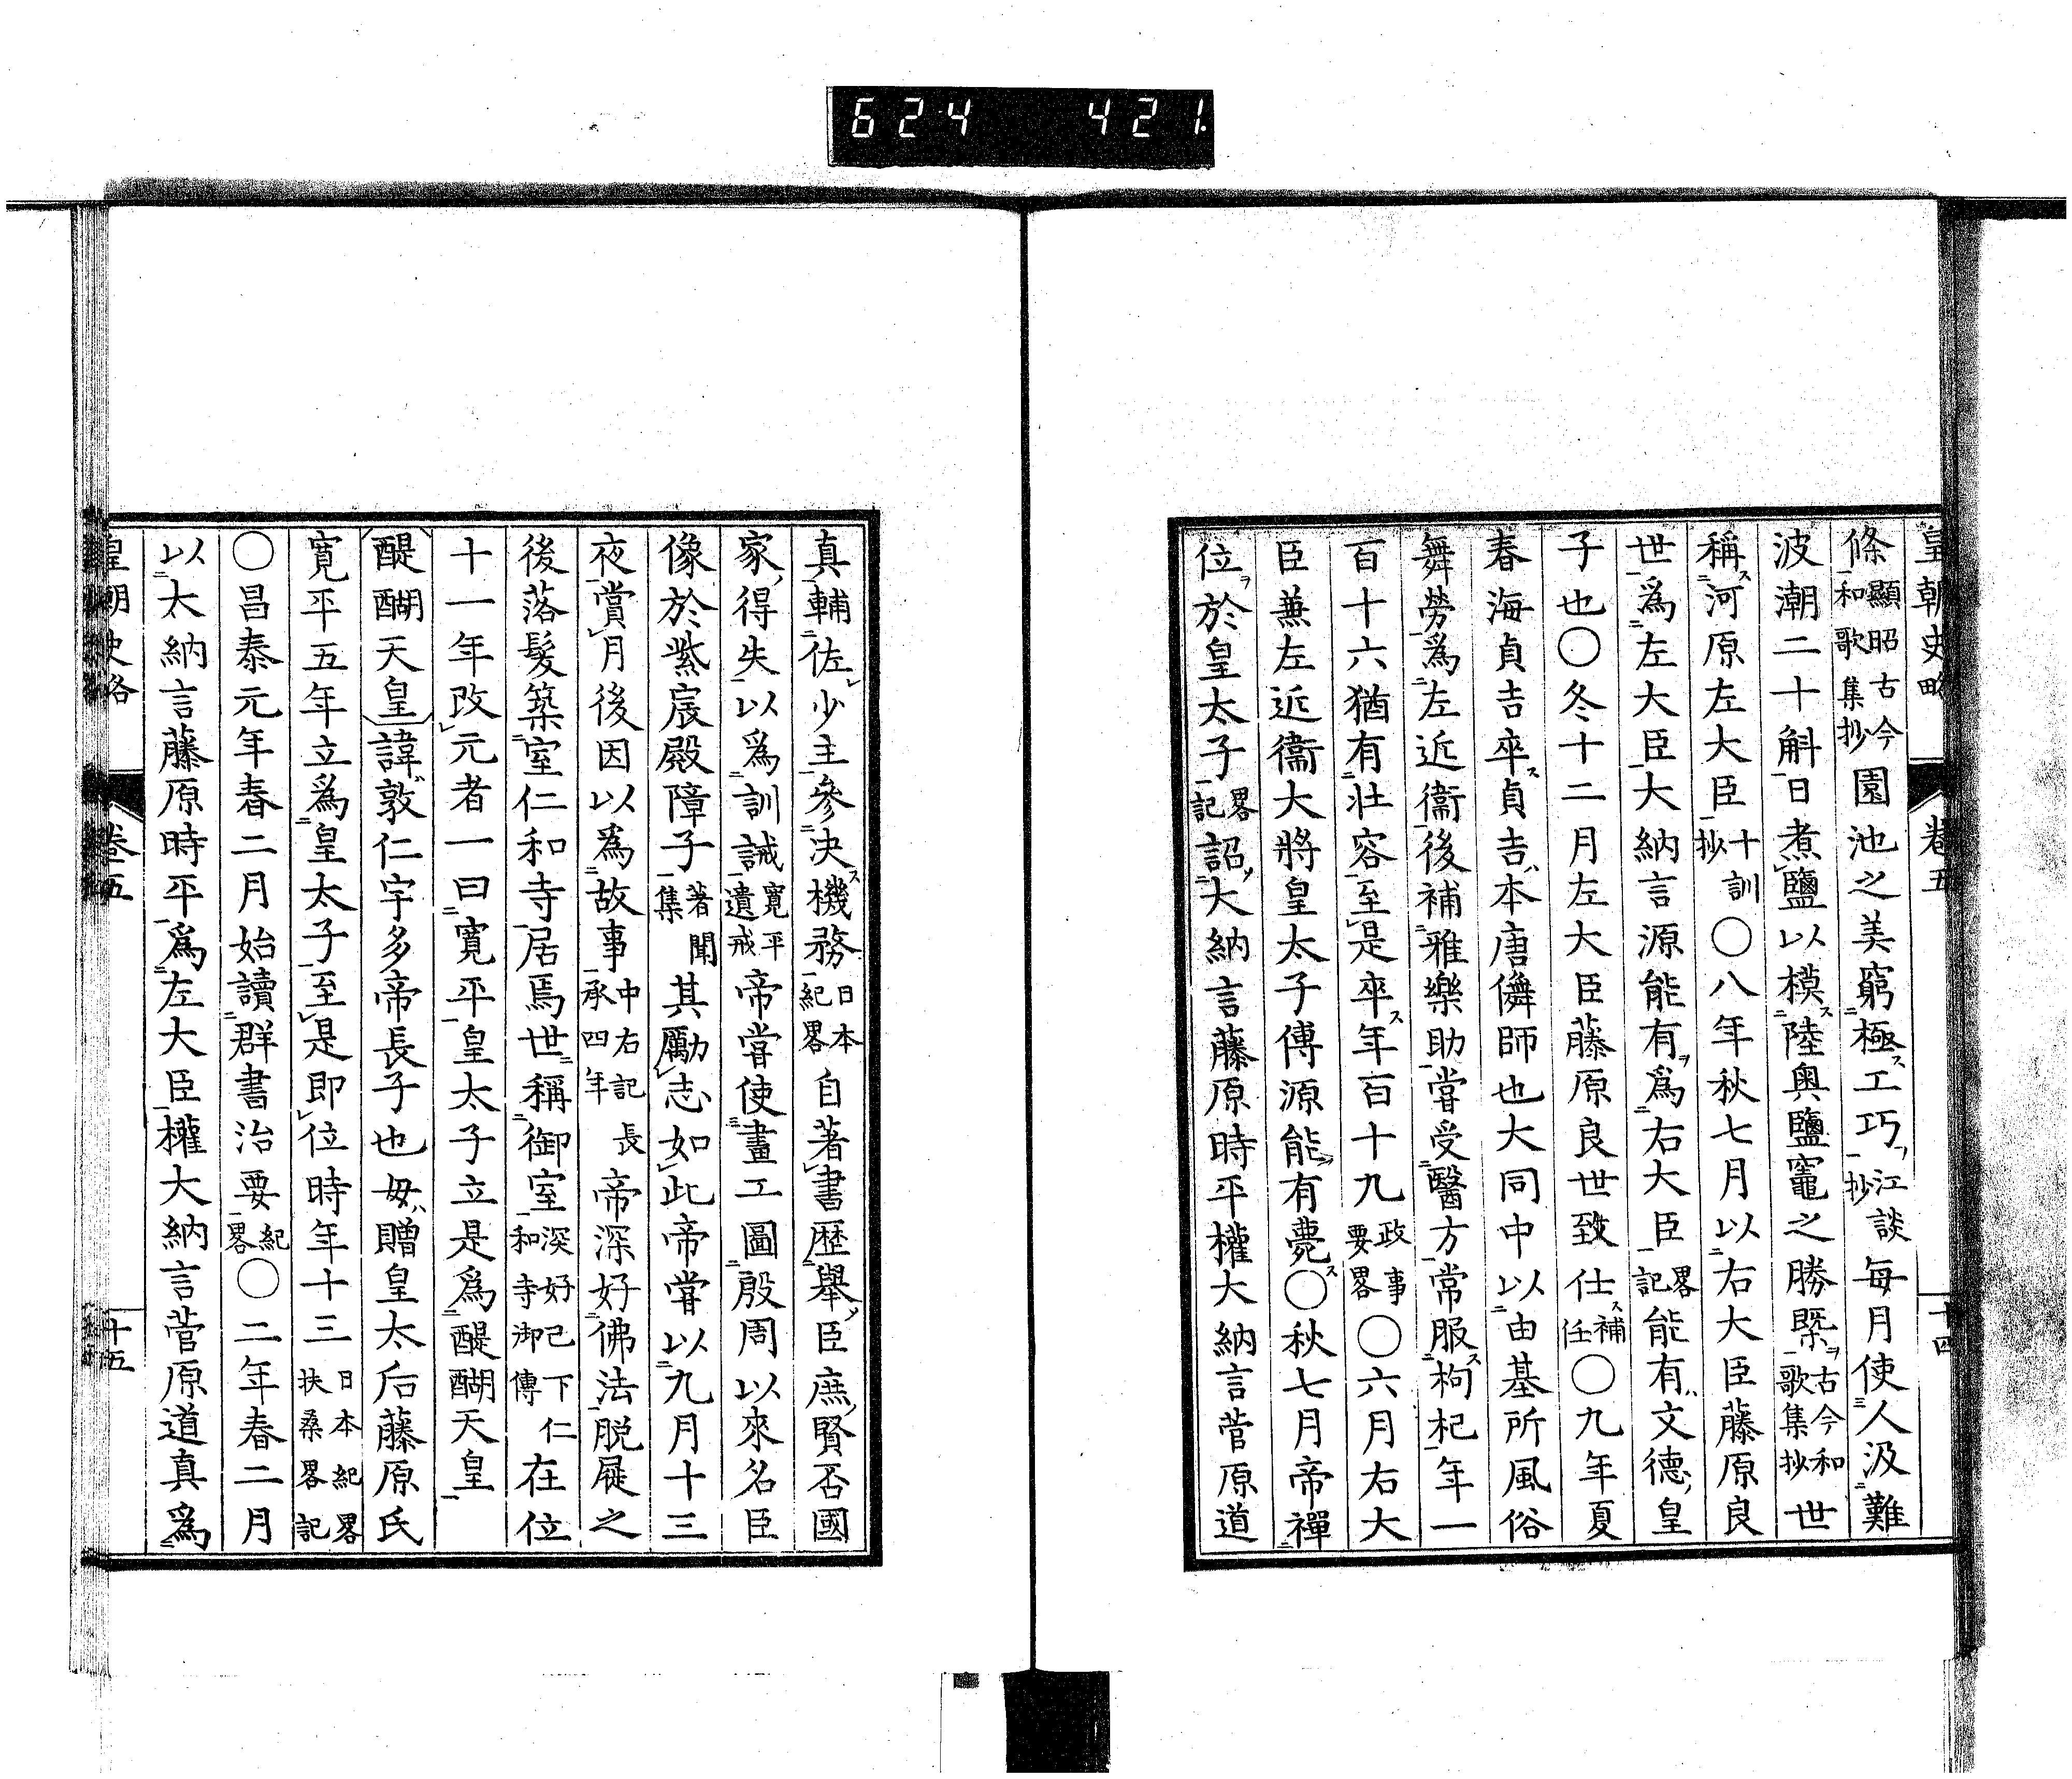 624 421
皇朝史略 卷五 十四
條顯昭古今和歌集抄園池之美窮極工巧江談抄毎月使人汲難
波潮二十斛日煮鹽以模陸奥鹽竈之勝槩古今和歌集抄世
稱河原左大臣十訓抄〇八年秋七月以右大臣藤原良
世爲左大臣大納言源能有爲右大臣畧記能有文德皇
子也〇冬十二月左大臣藤原良世致仕補任〇九年夏
春海貞吉卒貞吉本唐儛師也大同中以由基所風俗
舞勞爲左近衞後補雅樂助甞受醫方常服枸杞年一
百十六猶有壯容至是卒年百十九政事要畧〇六月右大
臣兼左近衞大將皇太子傅源能有薨〇秋七月帝禪
位於皇太子畧記詔大納言藤原時平權大納言菅原道
真輔佐少主參决機務日本紀畧自著書歴舉臣庶賢否國
家得失以爲訓誡寬平遺戒帝甞使畫工圖殷周以來名臣
像於紫宸殿障子著聞集其勵志如此帝甞以九月十三
夜賞月後因以爲故事中右記長承四年帝深好佛法脱屣之
後落髮築室仁和寺居焉世稱御室深好已下仁和寺御傳在位
十一年改元者一曰寬平皇太子立是爲醍醐天皇
醍醐天皇諱敦仁宇多帝長子也母贈皇太后藤原氏
寬平五年立爲皇太子至是即位時年十三日本紀畧扶桑畧記
〇昌泰元年春二月始讀群書治要紀畧〇二年春二月
以大納言藤原時平爲左大臣權大納言菅原道真爲
皇朝史略 卷五 十五